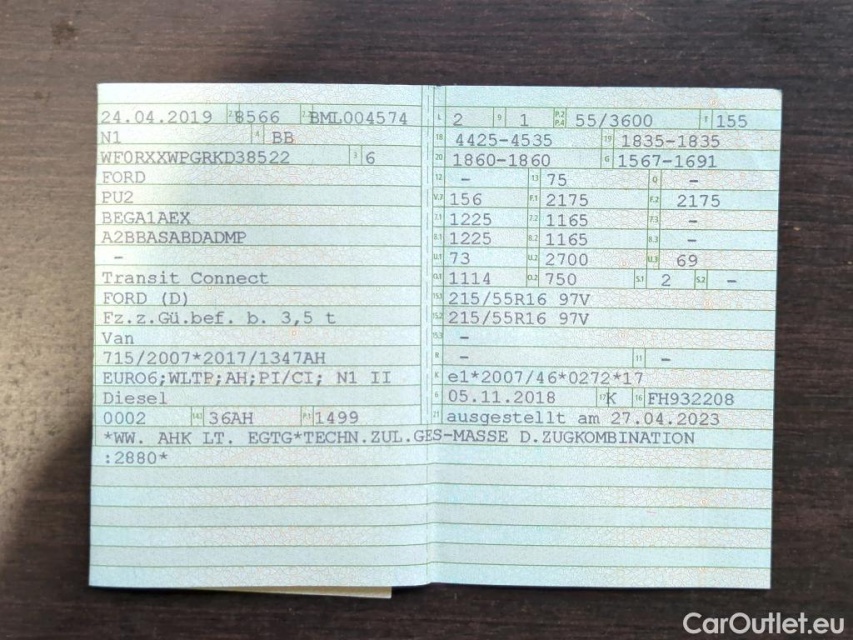 24.04.2019 2.1 8566 2.2 BML004574
N1 4 BB
WF0RXXWPGRKD38522 3 6
FORD
PU2
BEGA1AEX
A2BBASABDADMP
–
Transit Connect
FORD (D)
Fz.z.Gü.bef. b. 3,5 t
Van
715/2007*2017/1347AH
EURO6;WLTP;AH;PI/CI; N1 II
Diesel
0002 14.1 36AH P.1 1499
L 2 9 1 P.2 P.4 55/3600 T 155
18 4425-4535 19 1835-1835
20 1860-1860 G 1567-1691
12 – 13 75 Q –
V.7 156 F.1 2175 F.2 2175
7.1 1225 7.2 1165 7.3 –
8.1 1225 8.2 1165 8.3 –
U.1 73 U.2 2700 U.3 69
O.1 1114 O.2 750 S.1 2 S.2 –
15.1 215/55R16 97V
15.2 215/55R16 97V
15.3 –
R – 11 –
K e1*2007/46*0272*17
6 05.11.2018 17 K 16 FH932208
21 ausgestellt am 27.04.2023
*WW. AHK LT. EGTG*TECHN.ZUL.GES-MASSE D.ZUGKOMBINATION
:2880*
CarOutlet.eu